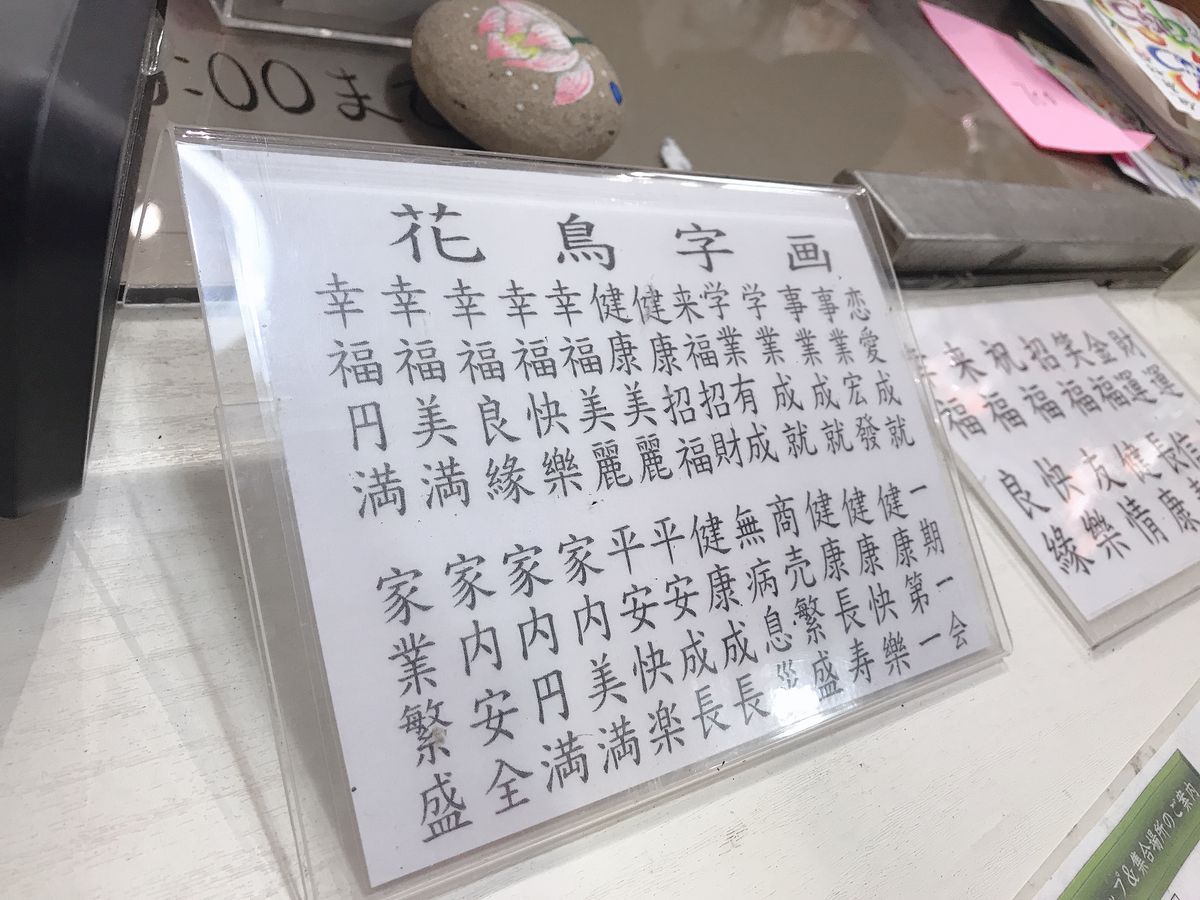 :00まで
花鳥字画
恋愛成就
事業宏發
事業成就
学業成就
学業有成
来福招財
健康招福
健康美麗
幸福美麗
幸福快樂
幸福良緣
幸福美満
幸福円満
一期一会
健康第一
健康快樂
健康長寿
商売繁盛
無病息災
健康成長
平安成長
平安快楽
家内美満
家内円満
家内安全
家業繁盛
財運
金運
笑福
招福
祝福
来福
健康
友情
快樂
良緣
プ&集合場所のご案内